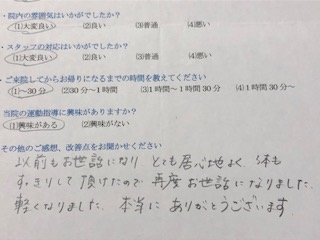 ・院内の雰囲気はいかがでしたか?
(1)大変良い (2)良い (3)普通 (4)悪い
・スタッフの対応はいかがでしたか?
(1)大変良い (2)良い (3)普通 (4)悪い
・ご来院してからお帰りになるまでの時間を教えてください
(1)～30分 (2)30分～1時間 (3)1時間～1時間30分 (4)1時間30分～
当院の運動指導に興味がありますか?
(1)興味がある (2)興味がない
その他のご感想、改善点をお聞かせください
以前もお世話になり とても居心地よく 体も
すっきりして頂けたので 再度お世話になりました。
軽くなりました。本当に ありがとうございます